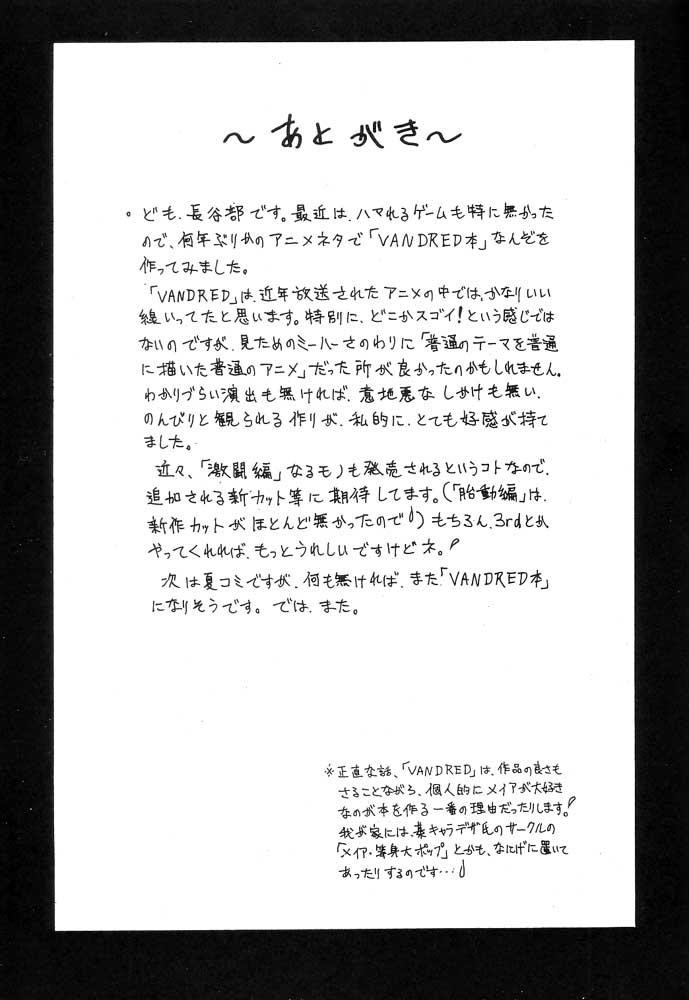 ～あとがき～
。ども、長谷部です。最近は、ハマれるゲームも特に無かった
ので、何年ぶりかのアニメネタで「VANDRED本」なんぞを
作ってみました。
「VANDRED」は、近年放送されたアニメの中では、かなりいい
線いってたと思います。特別に、どこかスゴイ!という感じでは
ないのですが、見ためのミーハーさのわりに「普通のテーマを普通
に描いた普通のアニメ」だった所が良かったのかもしれません。
わかりづらい演出も無ければ、意地悪なしかけも無い、
のんびりと観られる作りが、私的に、とても好感が持て
ました。
近々、「激闘編」なるモノも発売されるというコトなので、
追加される新カット等に期待してます。(「胎動編」は、
新作カットがほとんど無かったので)もちろん、3rdとか
やってくれれば、もっとうれしいですけどネ。
次は夏コミですが、何も無ければ、また「VANDRED本」
になりそうです。では、また。
※正直な話、「VANDRED」は、作品の良さも
さることながら、個人的にメイアが大好き
なのが本を作る一番の理由だったりします。
我が家には、某キャラデザ氏のサークルの
「メイア・等身大ポップ」とかも、なにげに置いて
あったりするのです…